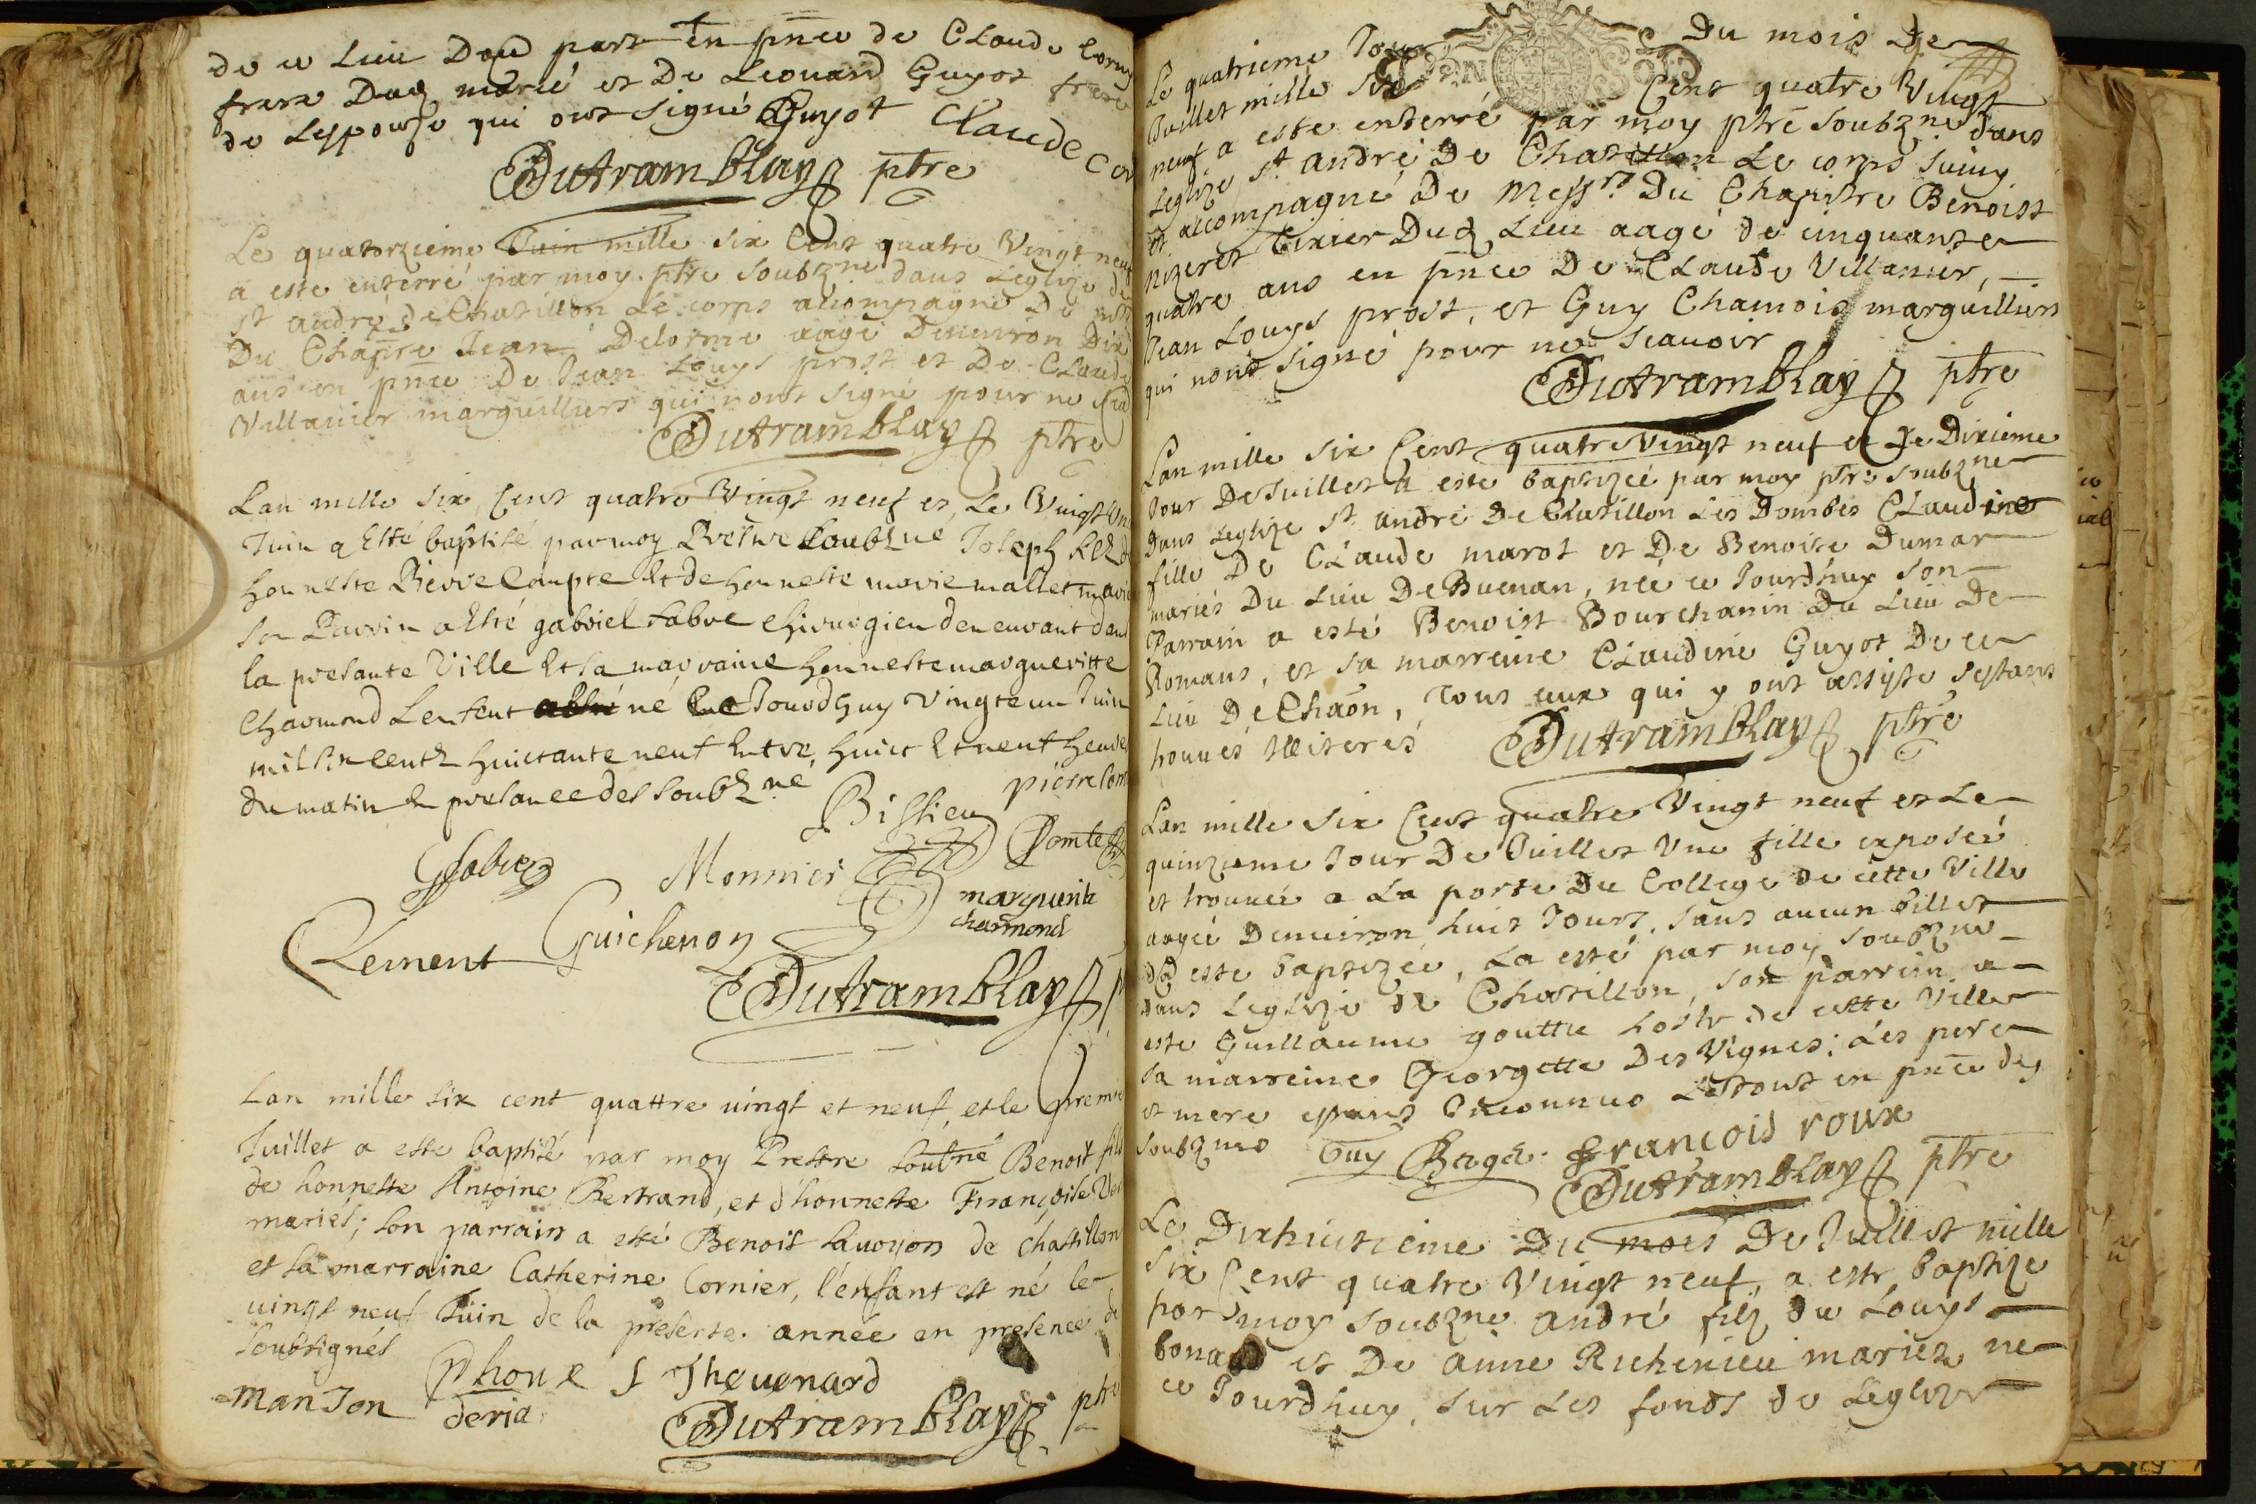 de ce Lieu Dau part En pnce de Claude Corny
frere Dud marié et De Leonard Guyot frere
de Lespouse qui ont signé Guyot Claude Cor
Dutramblay ptre
Le quatorzieme Juin mille six Cent quatre Vingt neuf
a este enterré par moy ptre soubzne dans Leglize de
st andre de Chatillon Le corps accompagné De
Du Chapre Jean Delorme aagé Denviron Dix
ans en pnce De Jean Louys prost et De Claude
Villanier marguilliers qui nont signé pour ne
Dutramblay ptre
Lan mille six Cent quatre Vingt neuf et Le Vingt un
Juin a Esté baptisé par moy Prestre soubzné Joseph
honneste Pierre Compte Et de honneste marie mallet
son Parrin a Esté gabriel fabre chirurgien demeurant dans
la presante Ville Et sa marraine honneste margueritte
Charmond Lenfent né Jourdhuy Vingt et un Juin
mil six centz huictante neuf Entre huict Et neuf heures
du matin En presance des soubzné
Bissieu pierre Com
GFabre Monnier Comte
marguerite
charmond
Clement Guichenon
Dutramblay p
Lan mille six cent quattre vingt et neuf et le premie
Juillet a esté baptisé par moy Prestre soubné Benoit fils
de honneste Antoine Bertrand, et d'honneste Françoise
mariés; son parrain a esté Benoit Savoyon de Chastillon
et sa marraine Catherine Cornier, l'enfant est né le
vingt neuf Juin de la presente année en presence de
soubsignés
Manjon Thevenard
deria
Dutramblay ptre
Le quatrieme Jour Du mois De
Juillet mille six Cent quatre Vingt
neuf a este enterré par moy ptre soubzne dans
Leglize st andré De Chatillon Le corps suivy
et accompagné De Messrs Du Chapistre Benoist
nizeret Tixier Dud Lieu aagé de cinquante
quatre ans en pnce De Claude Villanier,
Jean Louys prost, et Guy Chamois marguilliers
qui nont signé pour ne scavoir
Dutramblay ptre
Lan mille six Cent quatre Vingt neuf et Le Dixieme
Jour De Juillet a este baptizeé par moy ptre soubzne
dans Leglize st andré De Chatillon Les Dombes Claudine
fille De Claude marot et De Benoite Dumar
mariés Du Lieu De Buenan, neé ce Jourdhuy son
Parrain a esté Benoist Bourchanin Du Lieu De
Romans, et sa marreine Claudine Guyot De ce
Lieu De Chaon, Tous ceux qui y ont assisté sestant
trouvés Illiterés
Dutramblay ptre
Lan mille six Cent quatre Vingt neuf et Le
quinzieme Jour De Juillet Une fille exposeé
et trouvée a La porte Du College de cette Ville
aagée Denviron huit Jours, sans aucun billet
esté baptizée, La esté par moy soubzne
dans Leglize de Chatillon, son parrein a
esté Guillaume gouttu hoste de cette Ville
sa marreine Georgette Des Vignes; Les pere
et mere estant Inconnus Le tout en pnce des
soubznes Guy Bage francois roux
Dutramblay ptre
Le Dixhuitieme Du mois De Juillet mille
six Cent quatre Vingt neuf, a este baptize
par moy soubzne andré filz de Louys
bona et De anne Richenieu mariez ne
ce Jourdhuy, sur Les fonds de Leglize